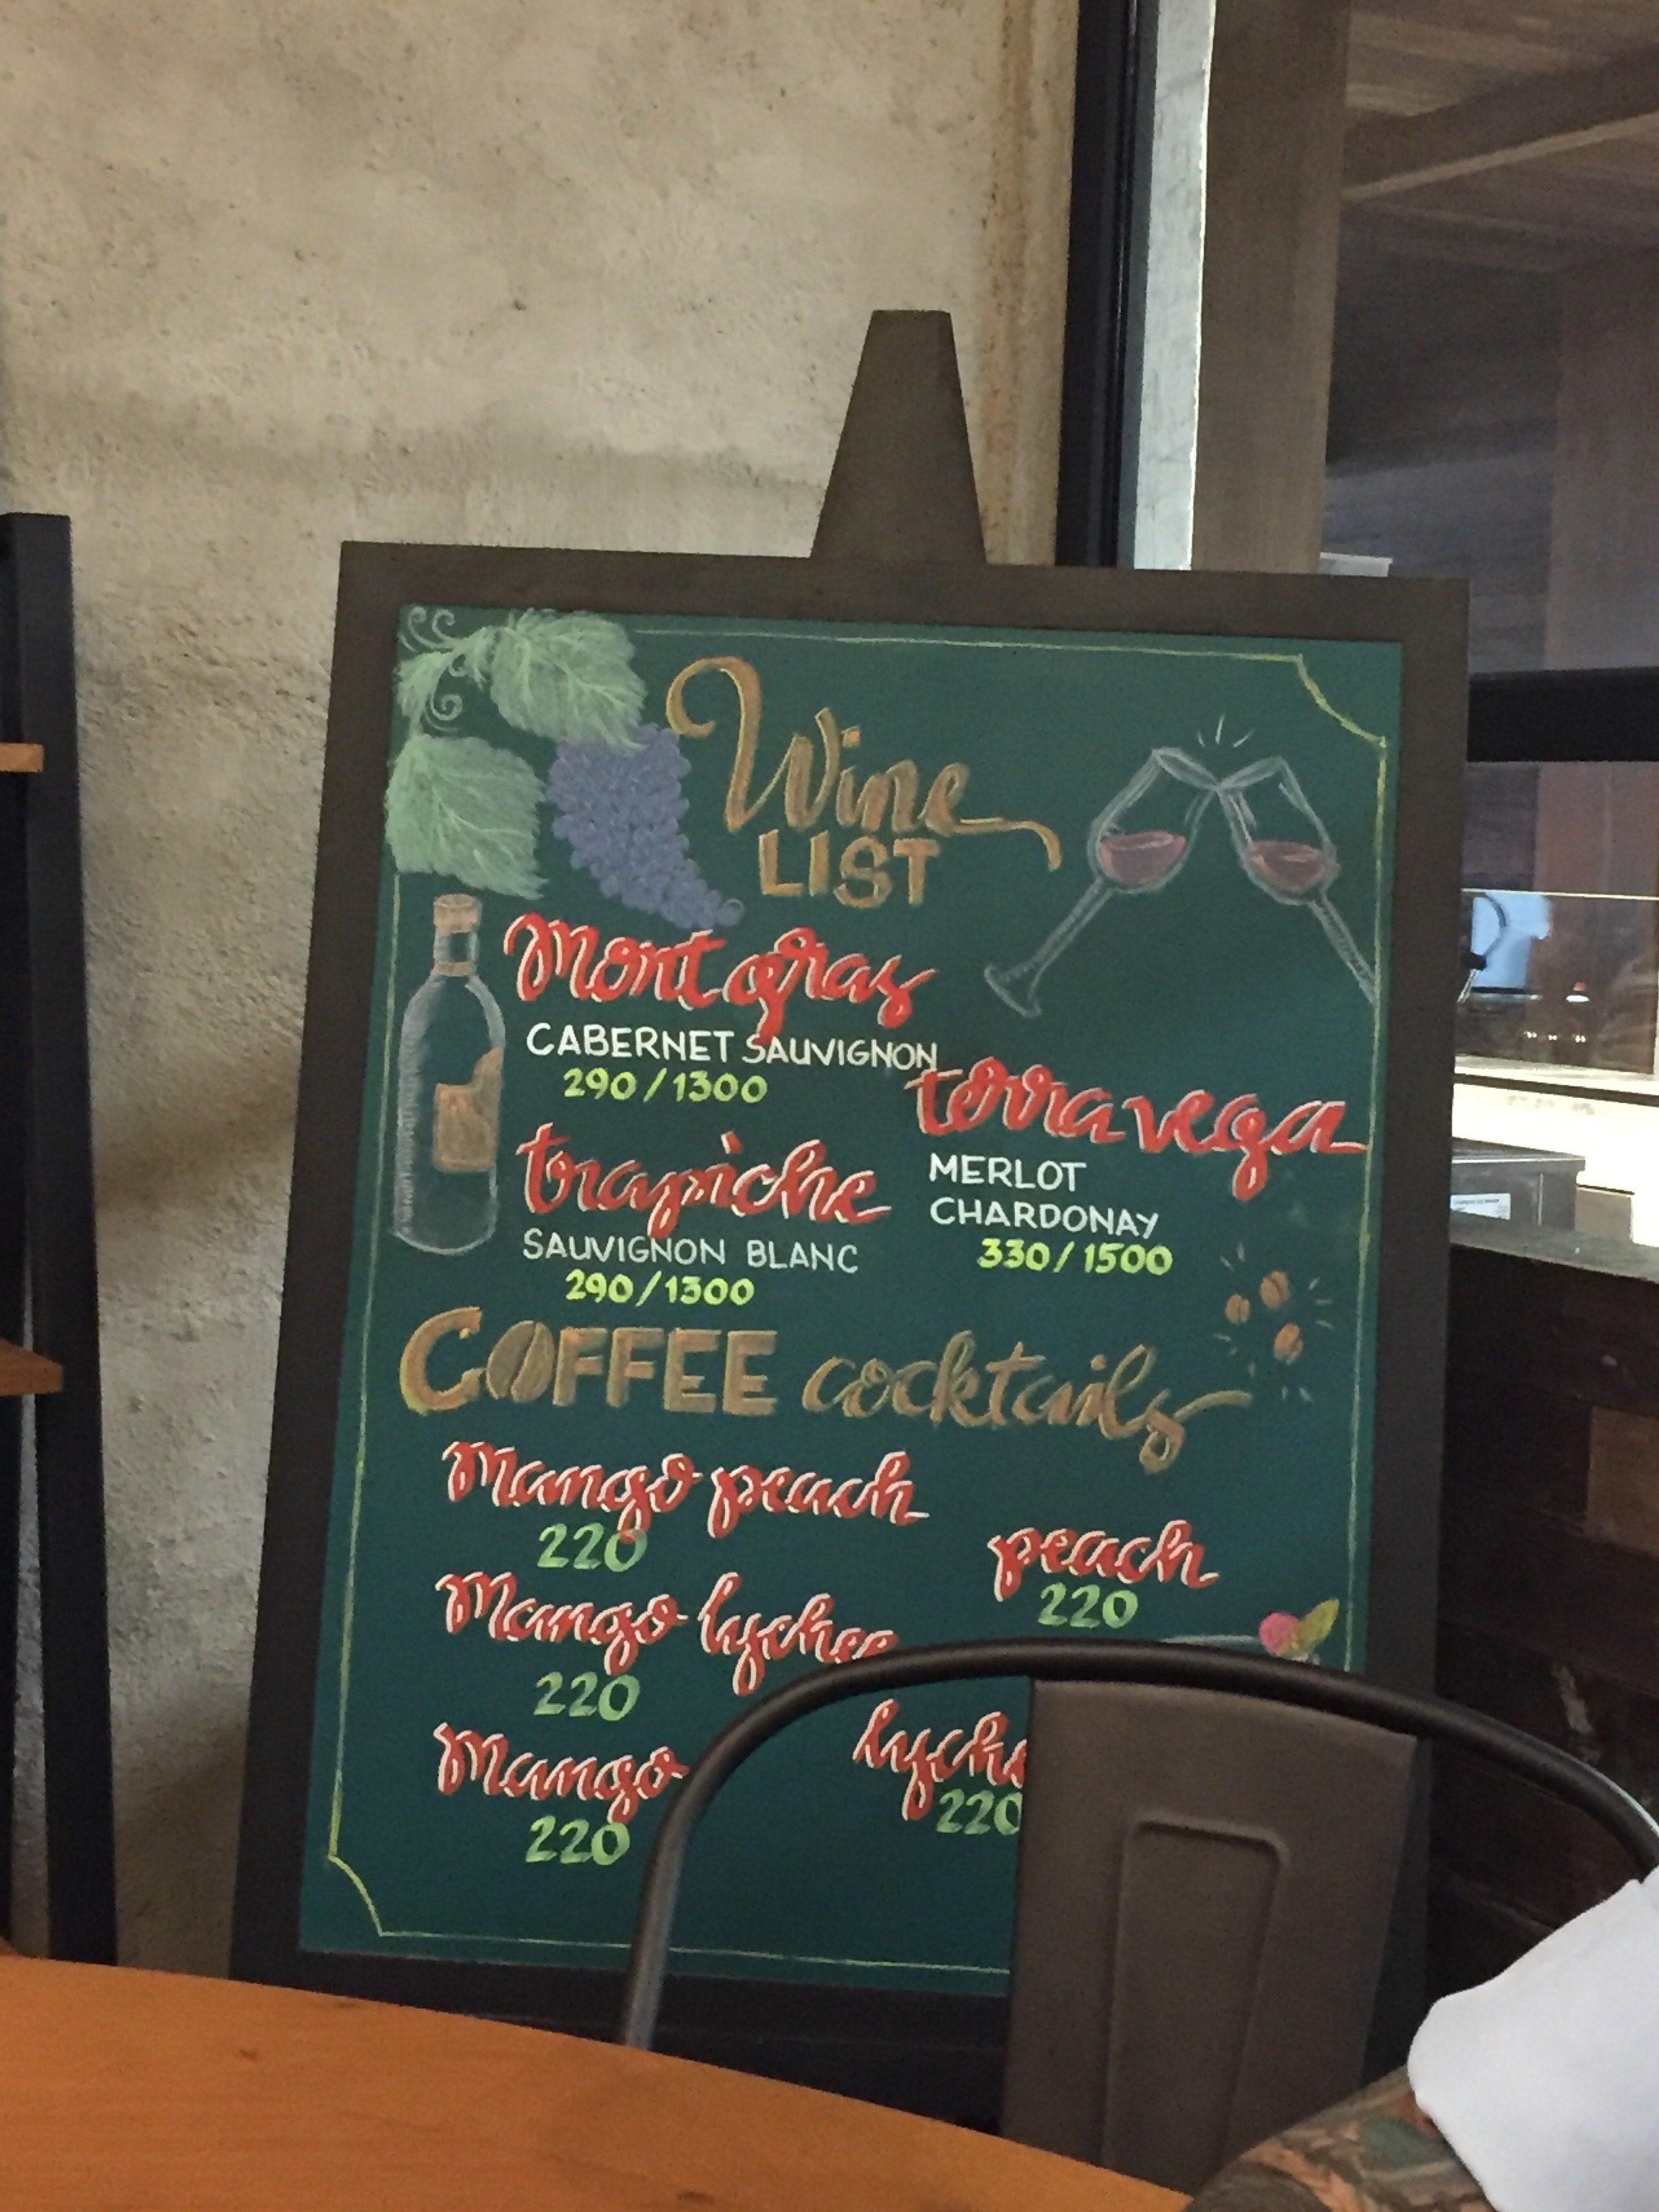 Wine
LIST
Montgras
CABERNET SAUVIGNON
290/1300
trapiche
SAUVIGNON BLANC
290/1300
terravega
MERLOT
CHARDONAY
330/1500
COFFEE cocktails
Mango peach
220
Mango lychee
220
Mango
220
peach
220
220